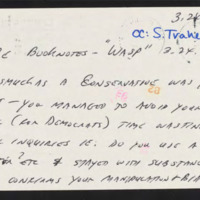 3.24
CC: S. Trahe
RE BOOKNOTES - "WASP" 3.24.
SMUCH AS A CONSERVATIVE WAS
T - YOU MANAGED TO AVOID YOUR
(CAN DEMOCRATS) TIME WASTING
INQUIRIES IE. DO YOU USE A
? ETC & STAYED WITH SUBSTANC
CONFIRMS YOUR MANIPULATOR & BIA